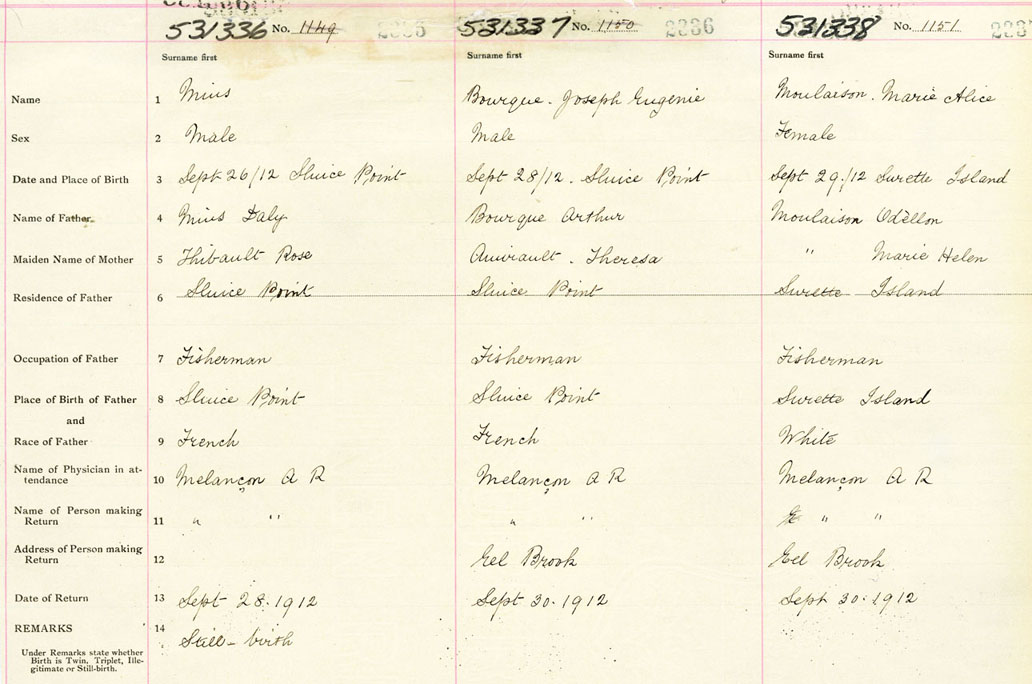 531336 No. 1149 2335 531337 No. 1150 2336 531338 No. 1151 233
Surname first Surname first Surname first
Name 1 Mius Bourque. Joseph Eugenie Moulaison. Marie Alice
Sex 2 Male Male Female
Date and Place of Birth 3 Sept 26/12 Sluice Point Sept 28/12. Sluice Point Sept 29./12 Surette Island
Name of Father 4 Mius Daly Bourque Arthur Moulaison Odèllon
Maiden Name of Mother 5 Thibault Rose Amirault. Theresa " Marie Helen
Residence of Father 6 Sluice Point Sluice Point Surette Island
Occupation of Father 7 Fisherman Fisherman Fisherman
Place of Birth of Father 8 Sluice Point Sluice Point Surette Island
and
Race of Father 9 French French White
Name of Physician in at-
tendance 10 Melançon A R Melançon A R Melançon A R
Name of Person making
Return 11 " " " " " "
Address of Person making
Return 12 Eel Brook Eel Brook
Date of Return 13 Sept 28. 1912 Sept 30. 1912 Sept 30. 1912
REMARKS 14 Still-birth
Under Remarks state whether
Birth is Twin, Triplet, Ille-
gitimate or Still-birth.